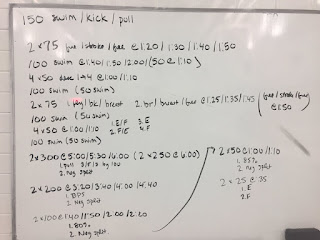 150 swim / kick / pull
2 x 75 free / stroke / free @ 1:20 / 1:30 / 1:40 / 1:50
100 swim @ 1:40 / 1:50 / 2:00 / (50 @ 1:10)
4 x 50 desc 1→4 @ 1:00 / 1:10
100 swim (50 swim)
2 x 75 1. fly / bk / breast 2. br / breast / free @ 1:25 / 1:35 / 1:45 (free / stroke / free) @ 1:50
100 swim (50 swim)
4 x 50 @ 1:00 / 1:10 1. E/F 2. F/E 3. E 4. F
100 swim (50 swim)
2 x 300 @ 5:00 / 5:30 / 6:00 (2 x 250 @ 6:00)
1. pull 3/5 by 100
2. Neg split
2 x 200 @ 3:20 / 3:40 / 4:00 / 4:40
1. DPS
2. Neg split
2 x 100 @ 1:40 / 1:50 / 2:00 / 2:20
1. 80%
2. Neg split
2 x 50 @ 1:00 / 1:10
1. 85%
2. Neg split
2 x 25 @ :35
1. E
2. F